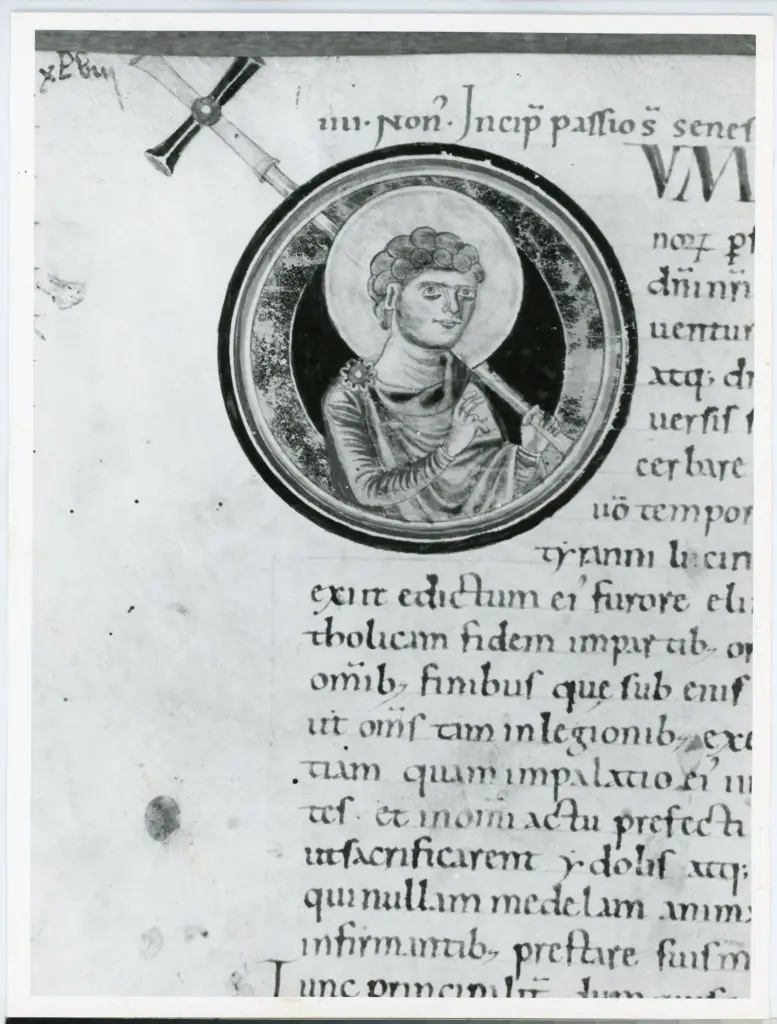 iiii·Non̄·Incip̄ passio s̄ senes
VM
noꝝ
dn̄i nr̄i
uentur
atq;
uersis
cerbare
uō tempor
tyranni licin
exiit edictum ei' furore
tholicam fidem impartib;
om̄ib; finibus quę sub eius
ut om̄s tam in legionib; exe
tiam quam impalatio ei'
tes· et in omni actu prefecti
ut sacrificarent ydolis atq;
qui nullam medelam anima
infirmantib; prestare suis
Tunc